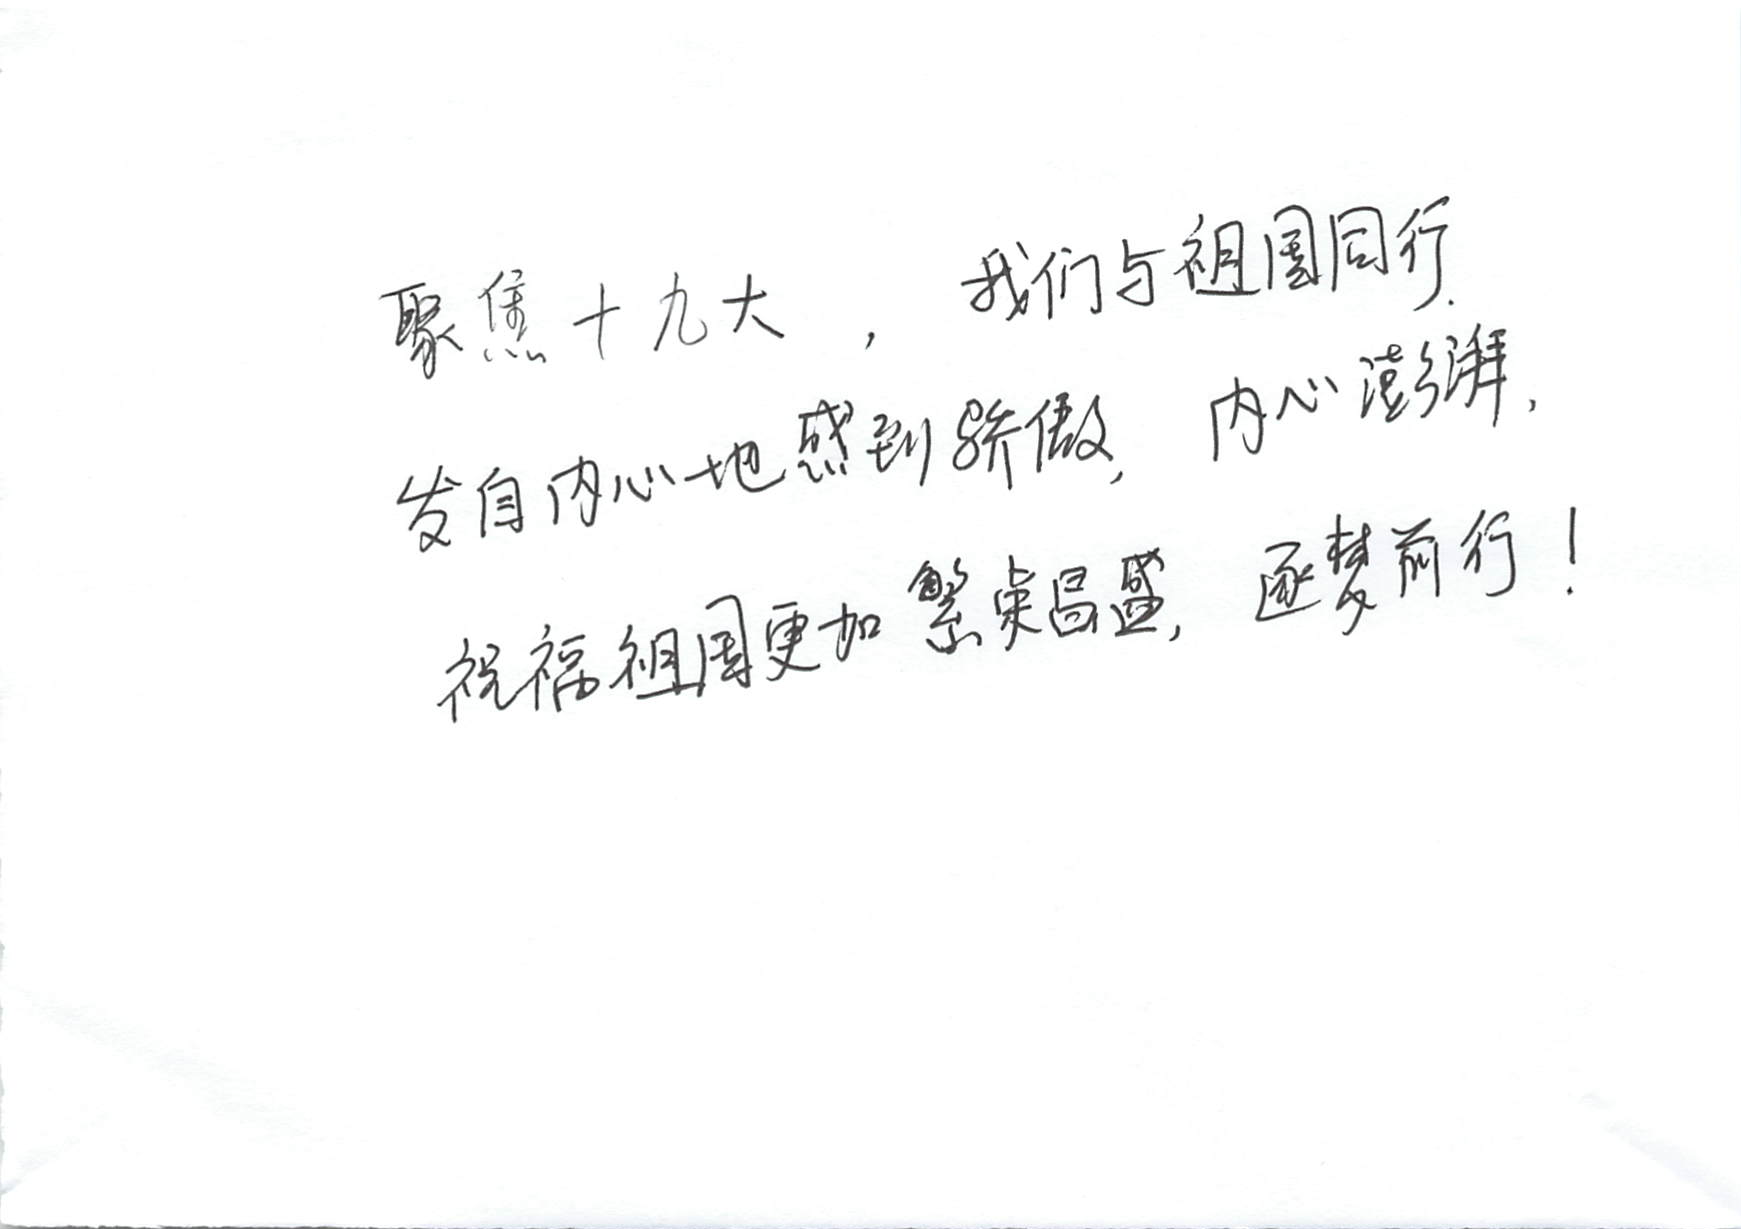 聚焦十九大，我们与祖国同行.
发自内心地感到骄傲，内心澎湃，
祝福祖国更加繁荣昌盛，逐梦前行！